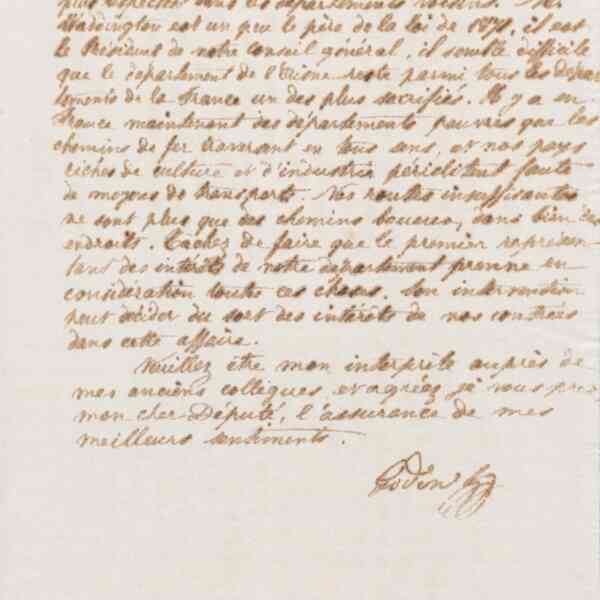 plus espacées dans les départements voisins. M.
Waddington est un peu le père de la loi de 1871, il est
le Président de notre Conseil général, il semble difficile
que le département de l'Aisne reste parmi tous les dépar
tements de la France un des plus sacrifiés. Il y a en
France maintenant des départements pauvres que les
chemins de fer traversent en tous sens, et nos pays
riches de culture et d'industrie périclitent faute
de moyens de transports. Nos routes insuffisantes
ne sont plus que des chemins boueux, dans bien des
endroits. Tachez de faire que le premier représen
tant des intérêts de notre département prenne en
considération toutes ces choses. Son intervention
peut décider du sort des intérêts de nos contrées
dans cette affaire.
Veuillez être mon interprète auprès de
mes anciens collègues, et agréez, je vous prie
mon cher Député, l'assurance de mes
meilleurs sentiments.
Godin